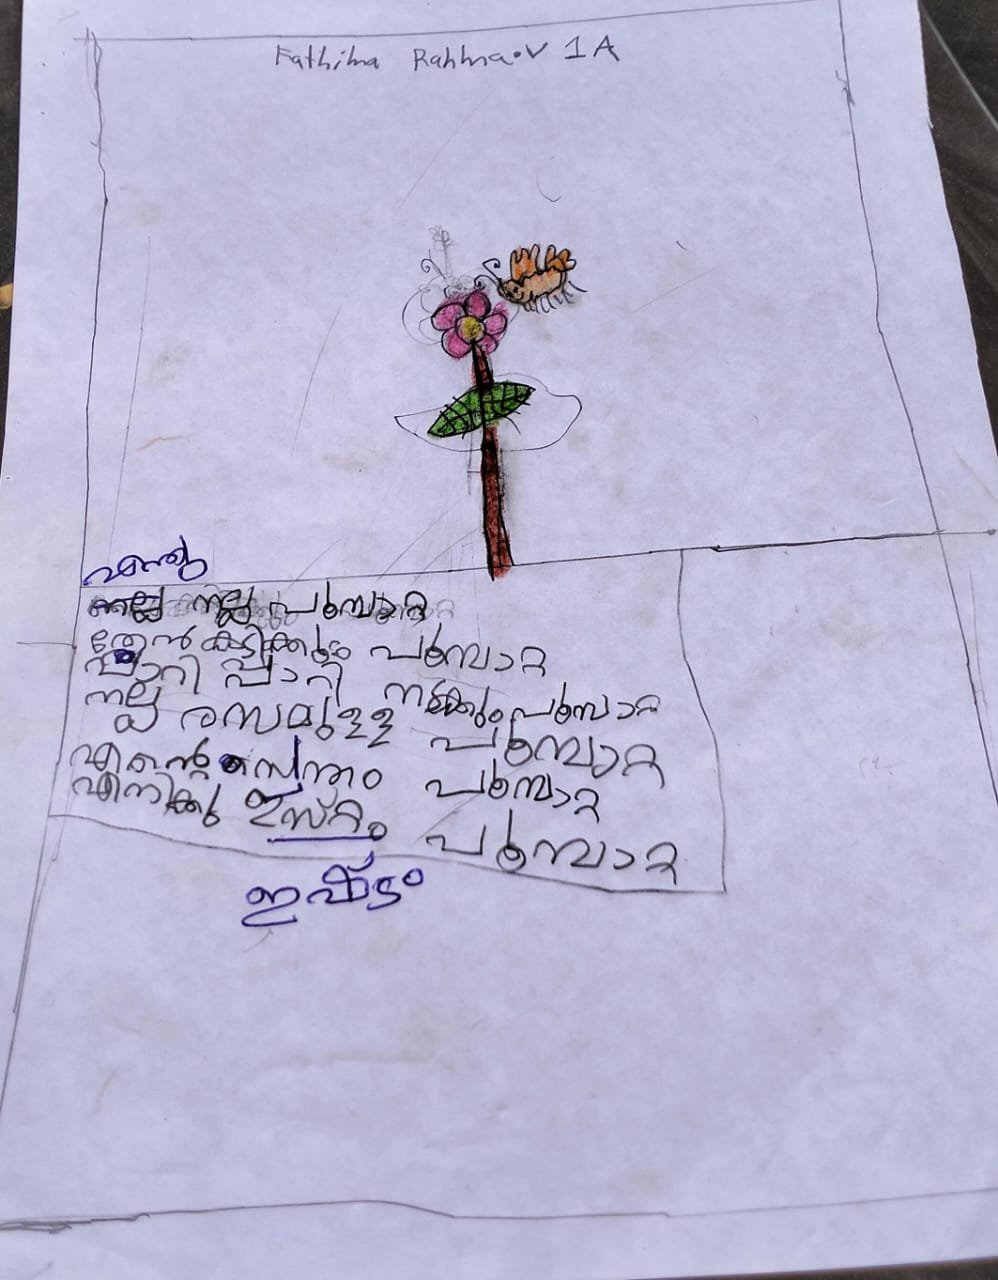 Fathima Rahma.V 1A
എന്തു
നല്ല നല്ല പൂമ്പാറ്റ
തേൻ കുടിക്കും പൂമ്പാറ്റ
പാറി പാറി നടക്കും പൂമ്പാറ്റ
നല്ല രസമുള്ള പൂമ്പാറ്റ
എന്റെ സ്വന്തം പൂമ്പാറ്റ
എനിക്കു ഇസ്റ്റം പൂമ്പാറ്റ
ഇഷ്ടം